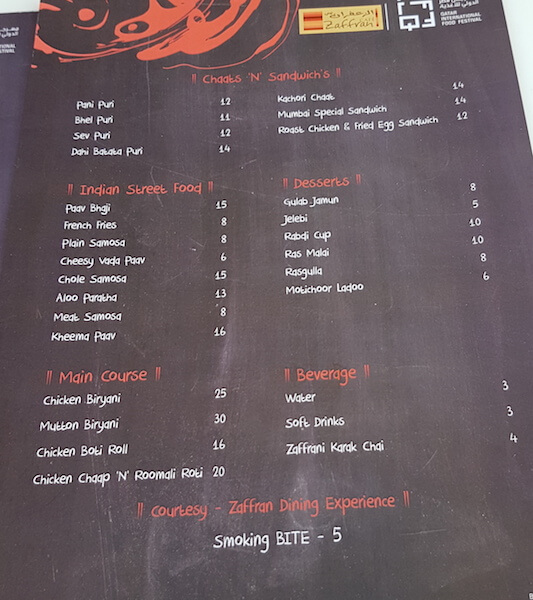 Zaffran
QATAR
INTERNATIONAL
FOOD FESTIVAL
|| Chaats 'N' Sandwich's ||
Pani Puri 12
Bhel Puri 11
Sev Puri 12
Dahi Batata Puri 14
Kachori Chaat 14
Mumbai Special Sandwich 14
Roast Chicken & Fried Egg Sandwich 12
|| Indian Street Food ||
Paav Bhaji 15
French Fries 8
Plain Samosa 8
Cheesy Vada Paav 6
Chole Samosa 15
Aloo Paratha 13
Meat Samosa 8
Kheema Paav 16
|| Desserts ||
Gulab Jamun 8
Jelebi 5
Rabdi Cup 10
Ras Malai 10
Rasgulla 8
Motichoor Ladoo 6
|| Main Course ||
Chicken Biryani 25
Mutton Biryani 30
Chicken Boti Roll 16
Chicken Chaap 'N' Roomali Roti 20
|| Beverage ||
Water 3
Soft Drinks 3
Zaffrani Karak Chai 4
|| Courtesy - Zaffran Dining Experience ||
Smoking BITE - 5